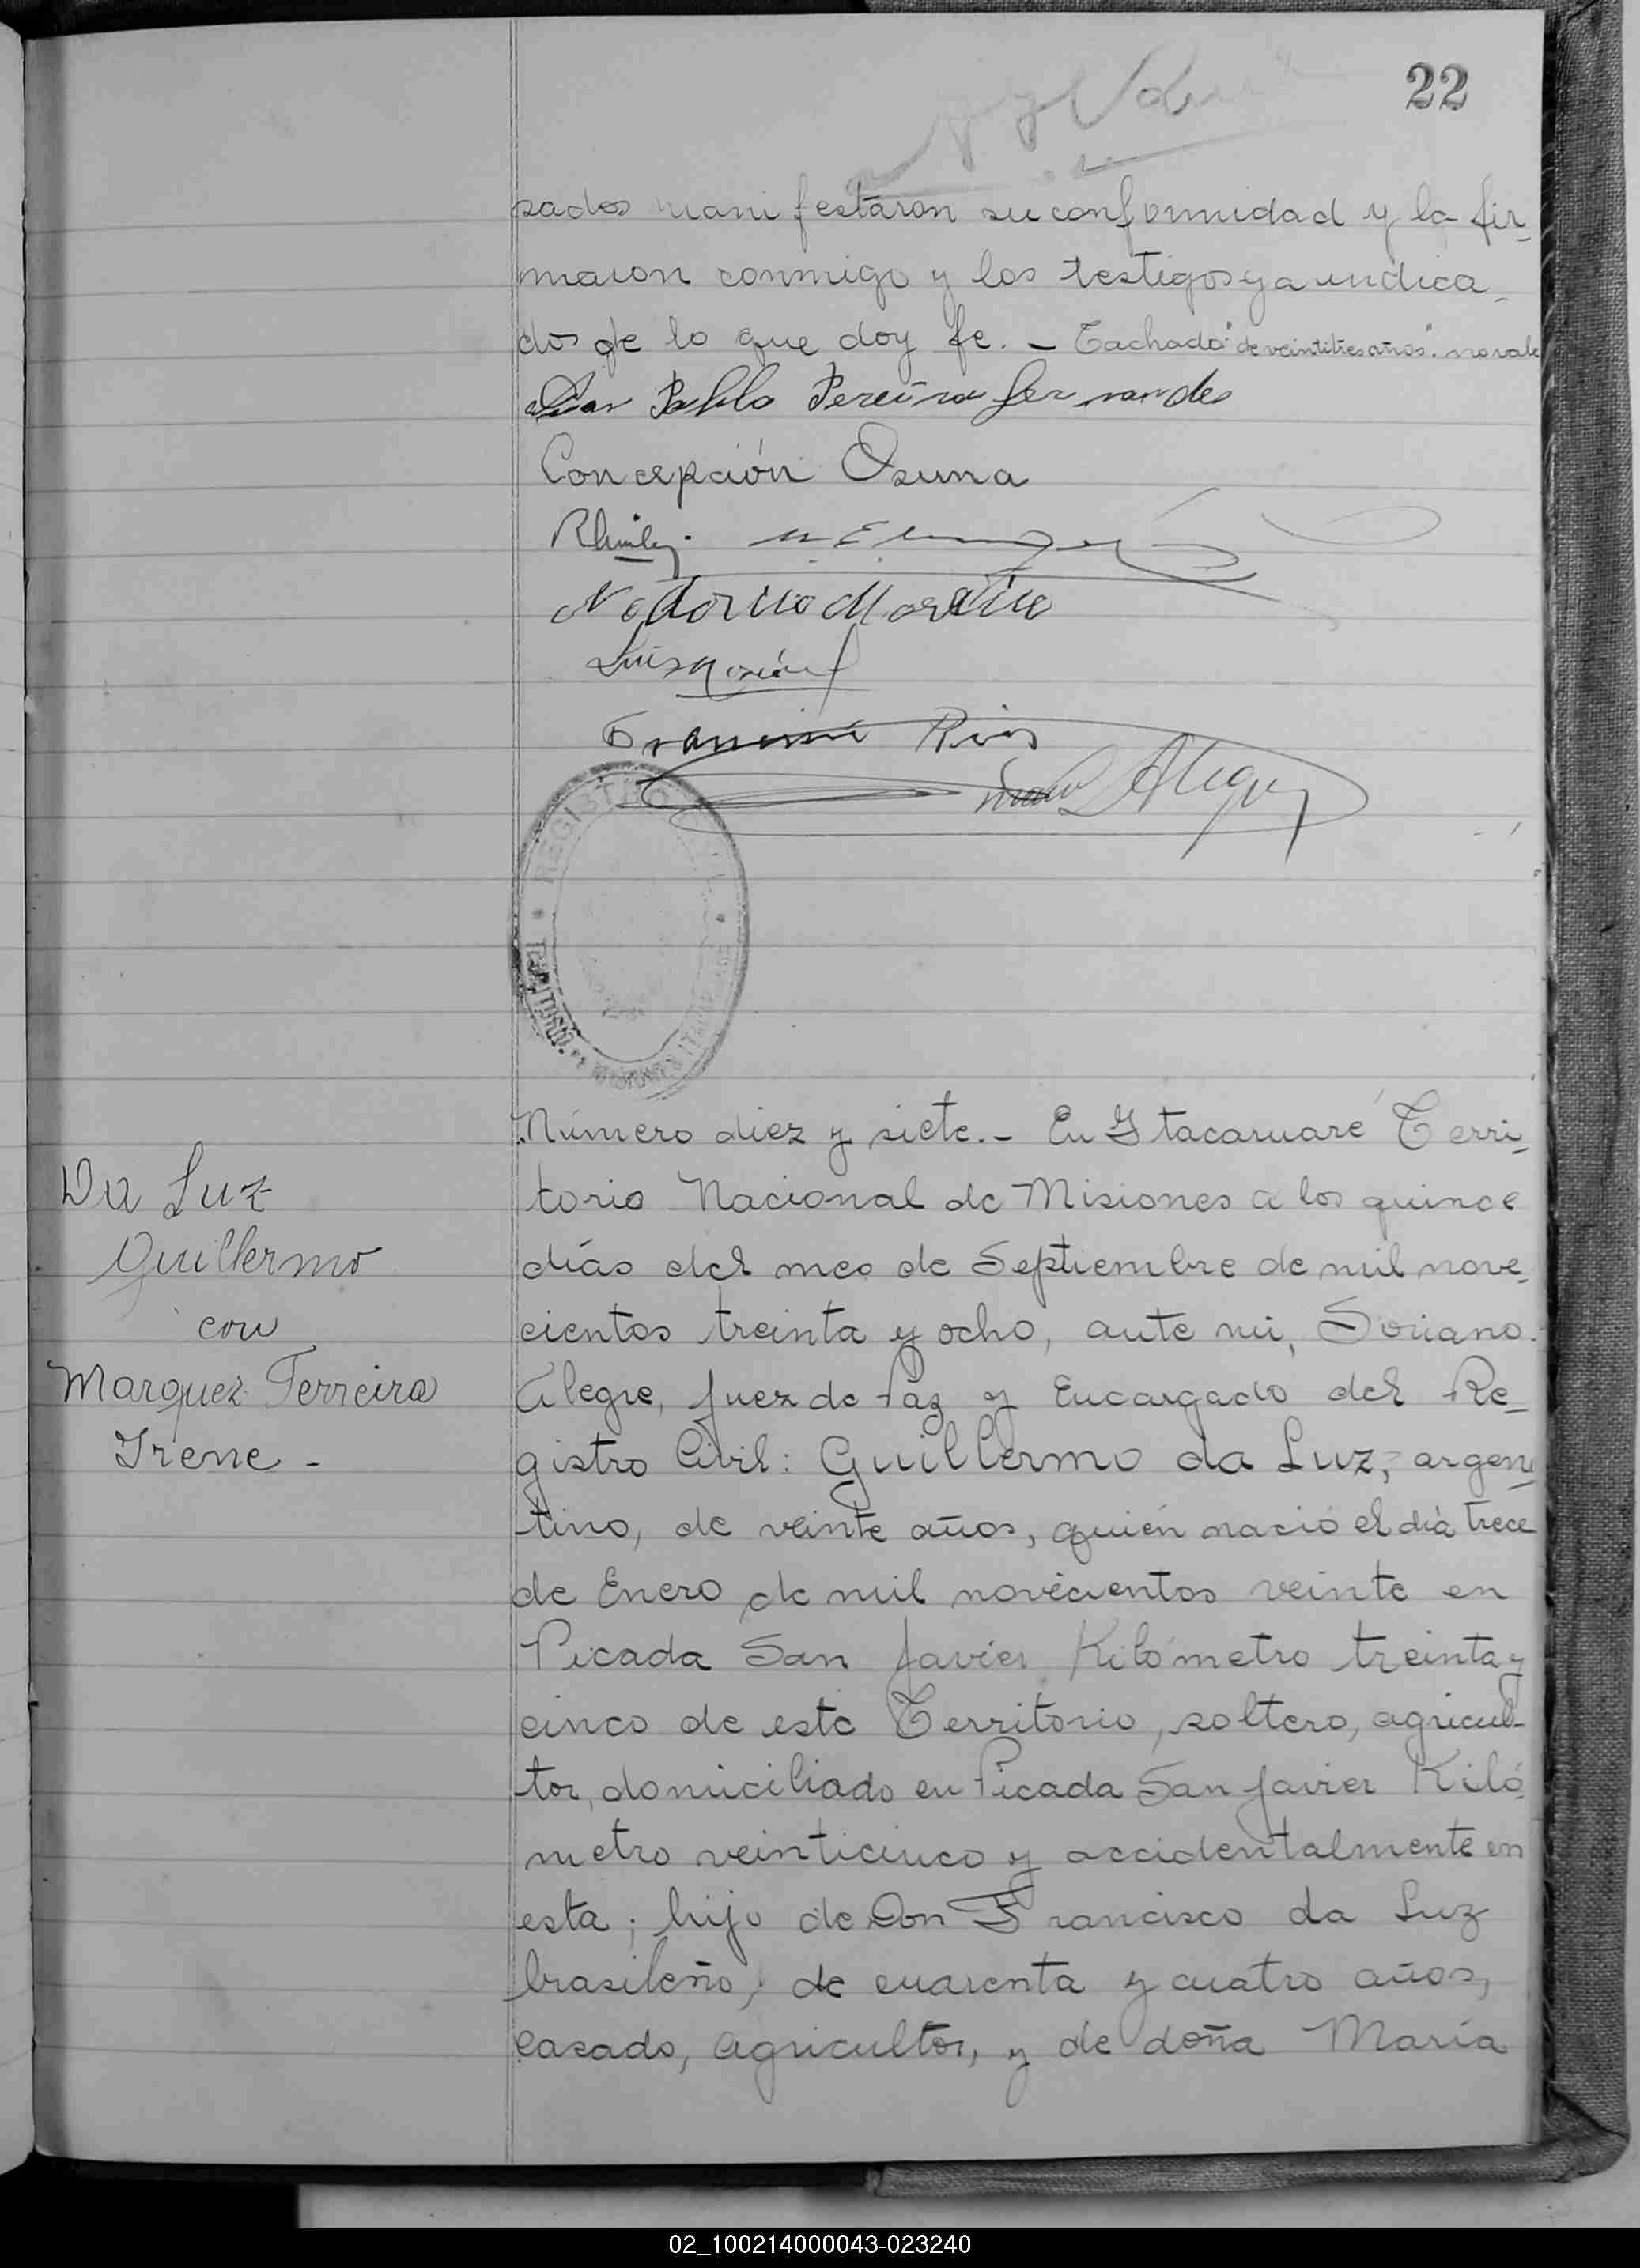 22
sados manifestaron su conformidad y la fir-
maron conmigo y los testigos ya indica-
dos de lo que doy fe. — Tachado "de veintitres años". no vale
Juan Pablo Pereira Fernandes
Concepción Osuna
Luis
Rios
Alegre
REGISTRO
Número diez y siete.- En Itacaruaré Terri-
torio Nacional de Misiones a los quince
días del mes de Septiembre de mil nove-
cientos treinta y ocho, ante mi, Soriano
Alegre, Juez de Paz y Encargado del Re-
gistro Civil: Guillermo da Luz, argen-
tino, de veinte años, quién nació el día trece
de Enero de mil novecientos veinte en
Picada San Javier Kilómetro treinta y
cinco de este Territorio, soltero, agricul-
tor, domiciliado en Picada San Javier Kiló-
metro veinticinco y accidentalmente en
esta; hijo de Don Francisco da Luz
brasileño, de cuarenta y cuatro años,
casado, agricultor, y de doña María
Da Luz
Guillermo
con
Marquez Ferreira
Irene -
02_100214000043-023240